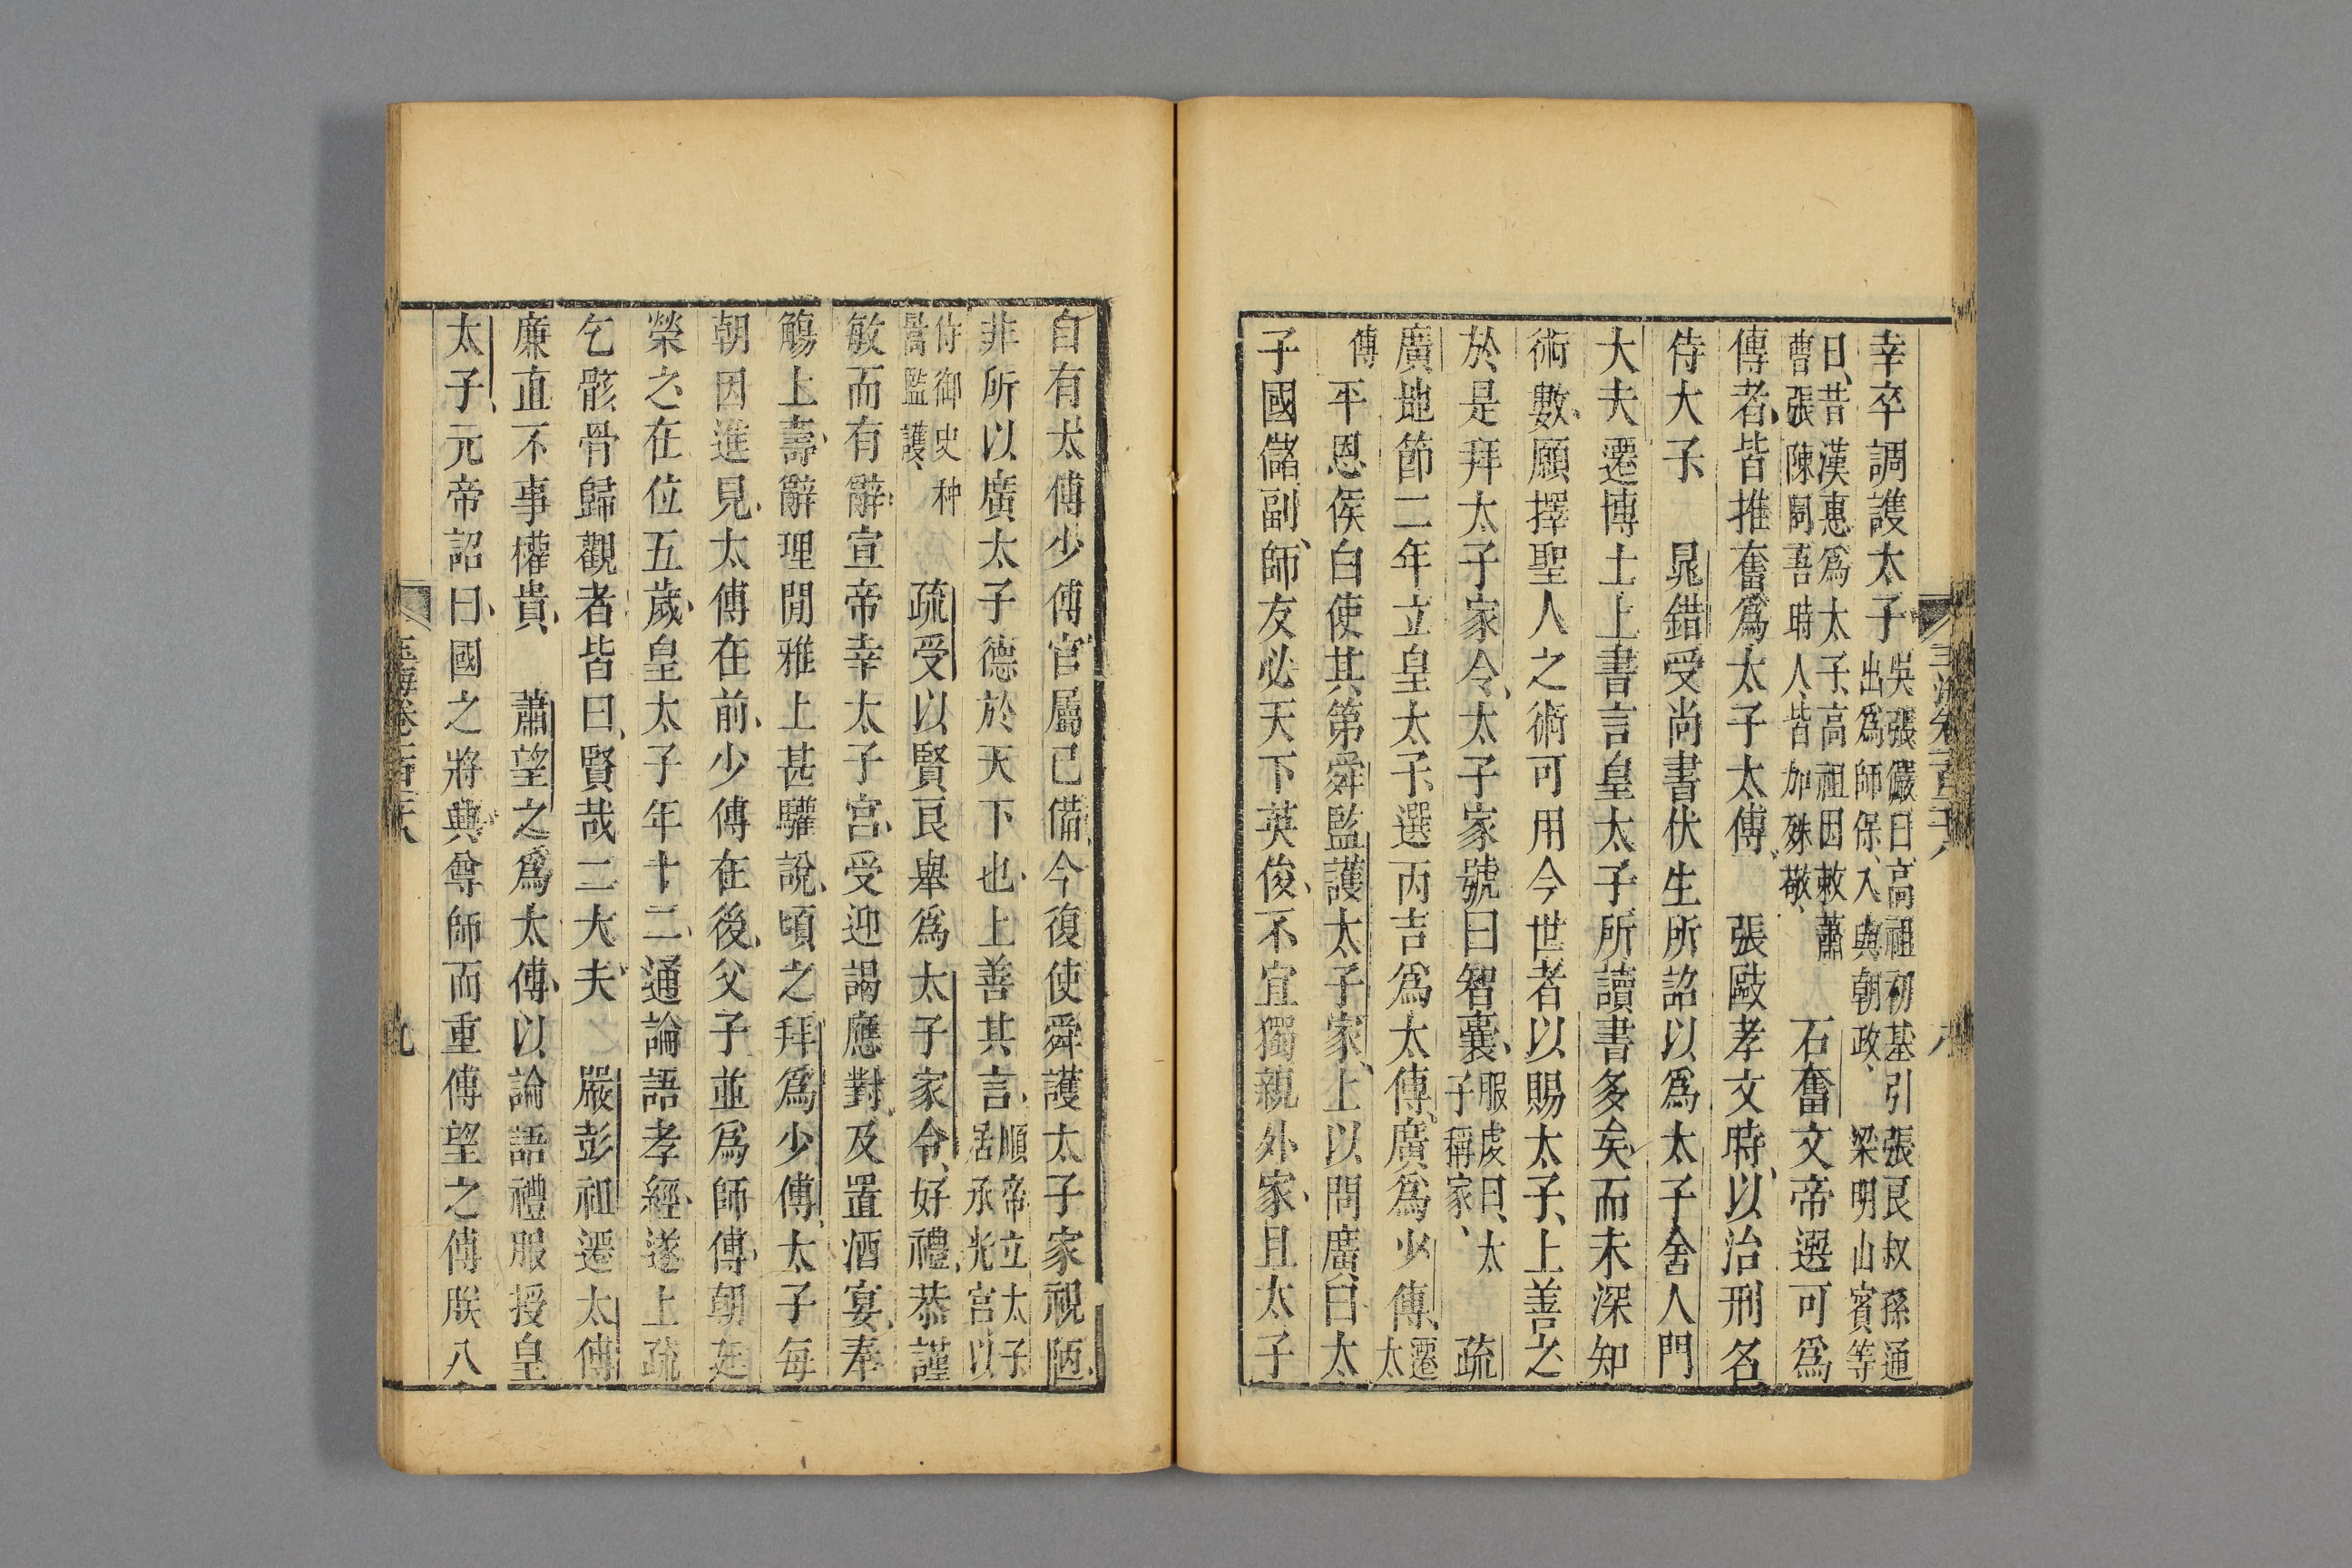 幸卒調護太子吳張儼曰高祖初基引張良叔孫通
出爲師保、入與朝政、梁明山賓等
曰、昔漢惠爲太子、高祖因敕蕭
曹張陳同吾時人、皆加殊敬、石奮文帝選可爲
傅者、皆推奮爲太子太傅 張歐孝文時、以治刑名
侍太子、 晁錯受尚書伏生所詔以爲太子舍人門
大夫遷博士上書言皇太子所讀書多矣而未深知
術數、願擇聖人之術可用今世者以賜太子、上善之
於是拜太子家令、太子家號曰智囊、服虔曰、太
子稱家、 疏
廣地節二年立皇太子、選丙吉爲太傅、廣爲少傅、遷
太
傅平恩侯白使其弟舜監護太子家、上以問廣、曰太
子國儲副、師友必天下英俊、不宜獨親外家、且太子
玉海卷一百二十八 八
自有太傅少傅官屬已備、今復使舜護太子家視陋、
非所以廣太子德於天下也、上善其言、順帝立太子
居承光宮以
侍御史种
暠監護、 疏受以賢良舉爲太子家令、好禮、恭謹
敏而有辭、宣帝幸太子宮、受迎謁應對、及置酒宴、奉
觴上壽、辭理閒雅上甚驩說、頃之拜爲少傅、太子每
朝因進見、太傅在前、少傅在後、父子並爲師傅、朝廷
榮之在位五歲、皇太子年十二、通論語孝經、遂上疏
乞骸骨歸觀者皆曰、賢哉二大夫 嚴彭祖遷太傅
廉直不事權貴、 蕭望之爲太傅、以論語禮服授皇
太子、元帝詔曰、國之將興、尊師而重傅望之傅朕八
玉海卷一百二十八 九